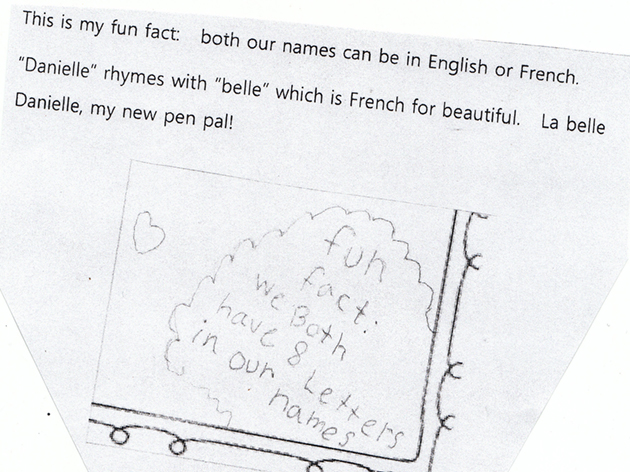 This is my fun fact: both our names can be in English or French.
"Danielle" rhymes with "belle" which is French for beautiful. La belle
Danielle, my new pen pal!
fun
fact:
we Both
have 8
Letters
in our
names